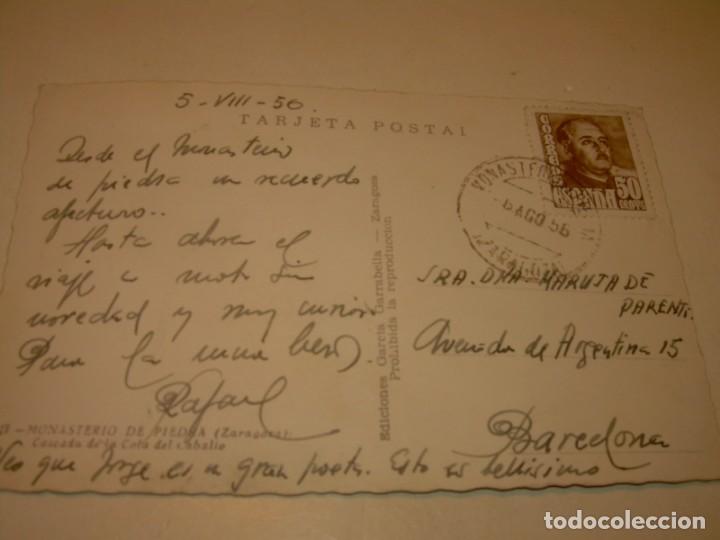 5-VIII-56.
TARJETA POSTAL
Desde el Monasterio
de piedra un recuerdo
afectuoso..
Hasta ahora el
viaje a moto sin
novedad y muy curioso
Para la nena besos
Rafael
- MONASTERIO DE PIEDRA (Zaragoza)
Cascada de la Cola del Caballo
Veo que Jorge es un gran poeta. Esto es bellísimo
Ediciones García Garrabella — Zaragoza
Prohibida la reproducción
CORREOS
ESPAÑA 50
CENTS
MONASTERIO
6 AGO 56
ZARAGOZA
SRA. DRA. MARUJA DE
PARENTI.
Avenida de Argentina 15
Barcelona
todocoleccion.net